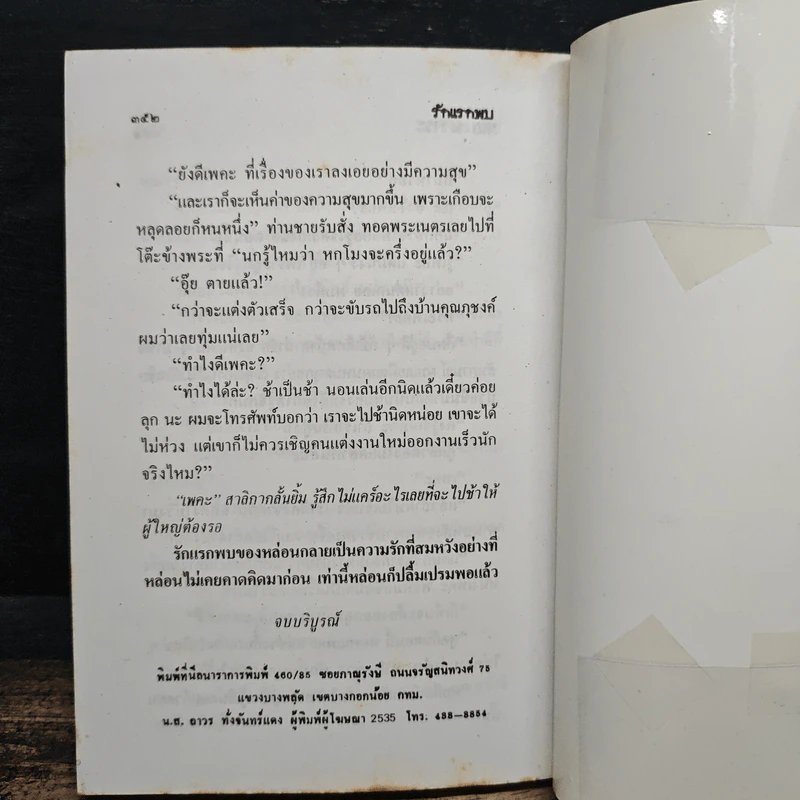 ๓๕๒
รักแรกพบ
“ยังดีเพคะ ที่เรื่องของเราลงเอยอย่างมีความสุข”
“และเราก็จะเห็นค่าของความสุขมากขึ้น เพราะเกือบจะ
หลุดลอยก็หนหนึ่ง” ท่านชายรับสั่ง ทอดพระเนตรเลยไปที่
โต๊ะข้างพระที่ “นกรู้ไหมว่า หกโมงจะครึ่งอยู่แล้ว?”
“อุ๊ย ตายแล้ว!”
“กว่าจะแต่งตัวเสร็จ กว่าจะขับรถไปถึงบ้านคุณภุชงค์
ผมว่าเลยทุ่มแน่เลย”
“ทำไงดีเพคะ?”
“ทำไงได้ล่ะ? ช้าเป็นช้า นอนเล่นอีกนิดแล้วเดี๋ยวค่อย
ลุก นะ ผมจะโทรศัพท์บอกว่า เราจะไปช้านิดหน่อย เขาจะได้
ไม่ห่วง แต่เขาก็ไม่ควรเชิญคนแต่งงานใหม่ออกงานเร็วนัก
จริงไหม?”
“เพคะ” สาลิกากลั้นยิ้ม รู้สึกไม่แคร์อะไรเลยที่จะไปช้าให้
ผู้ใหญ่ต้องรอ
รักแรกพบของหล่อนกลายเป็นความรักที่สมหวังอย่างที่
หล่อนไม่เคยคาดคิดมาก่อน เท่านี้หล่อนก็ปลื้มเปรมพอแล้ว
จบบริบูรณ์
พิมพ์ที่นีลนาราการพิมพ์ 460/85 ซอยภาณุรังษี ถนนจรัญสนิทวงศ์ 75
แขวงบางพลัด เขตบางกอกน้อย กทม.
น.ส. ถาวร ทั่งจันทร์แดง ผู้พิมพ์ผู้โฆษณา 2535 โทร. 433-8854